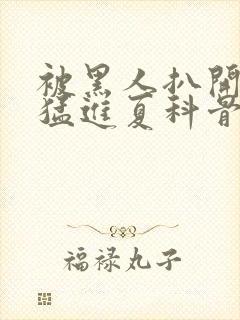 被黑人扒開
猛進夏科骨
福禄丸子